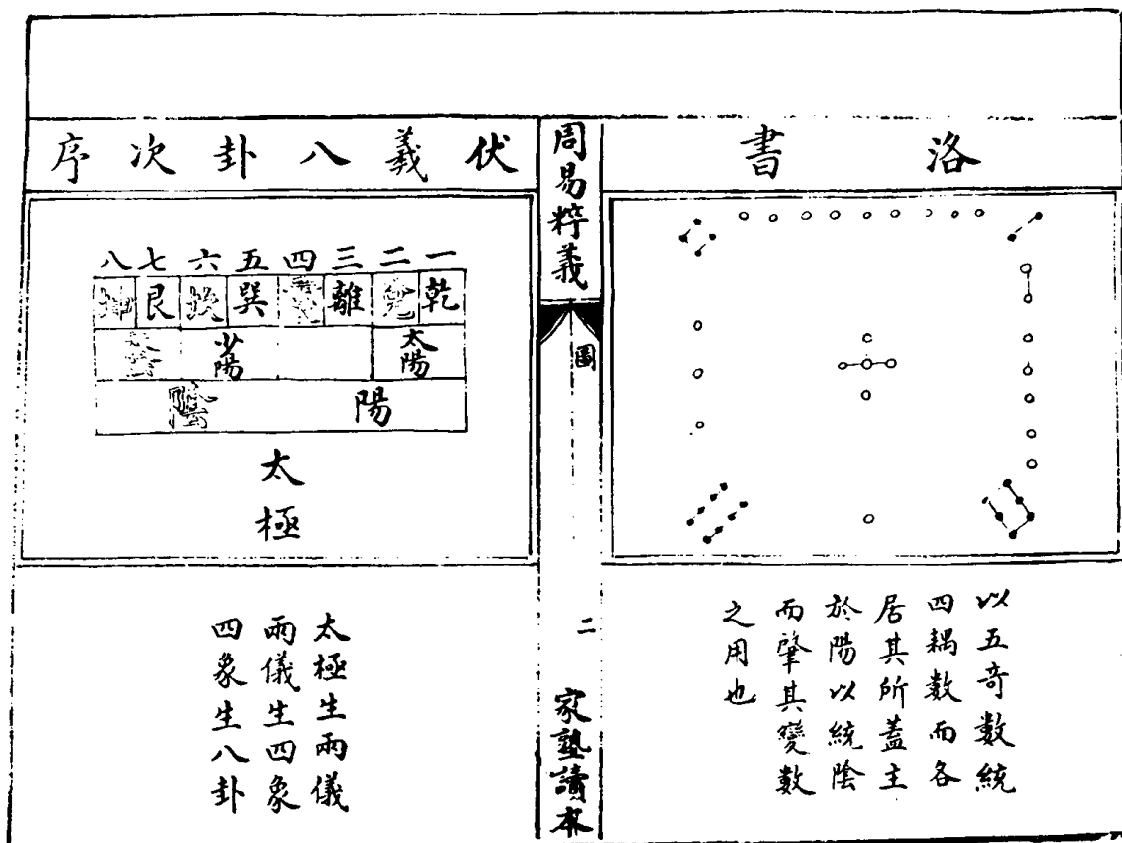 洛書
以五奇數統
四耦數而各
居其所蓋主
於陽以統陰
而肇其變數
之用也
周易粹義
圖
二
家塾讀本
伏羲八卦次序
一二三四五六七八
乾兌離震巽坎艮坤
太陽 少陽 太陰
陽陰
太極
太極生兩儀
兩儀生四象
四象生八卦